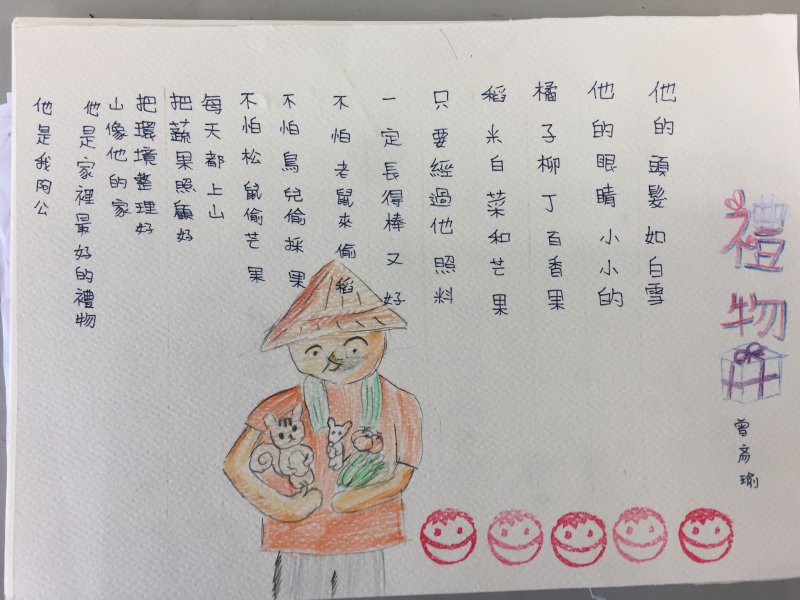 禮物
曾齋瑜
他的頭髮如白雪
他的眼睛小小的
橘子柳丁百香果
稻米白菜和芒果
只要經過他照料
一定長得棒又好
不怕老鼠來偷稻
不怕鳥兒偷採果
不怕松鼠偷芒果
每天都上山
把蔬果照顧好
把環境整理好
山像他的家
他是家裡最好的禮物
他是我阿公